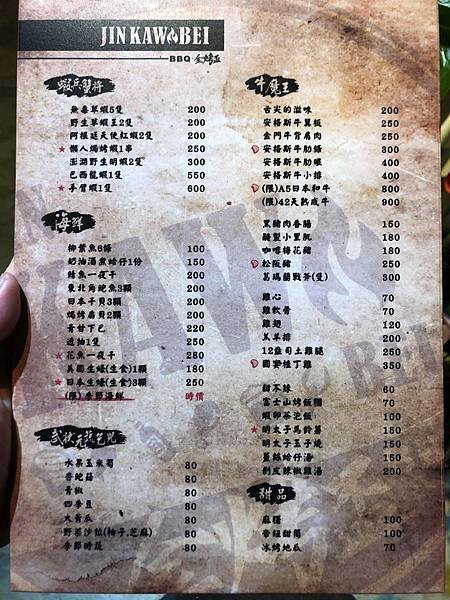 JINKAWBEI
BBQ 金烤盃
蝦兵蟹將
無毒草蝦5隻 200
野生草蝦王2隻 200
阿根廷天使紅蝦2隻 200
★懶人焗烤蝦1串 250
澎湖野生明蝦2隻
巴西龍蝦1隻 550
★手臂蝦1隻 600
海鮮
柳葉魚6條 100
奶油酒蒸蛤仔1份 150
鯖魚一夜干 200
東北角鮑魚3顆 200
日本干貝3顆 200
焗烤扇貝2顆 200
青甘下巴 220
透抽1隻 250
★花魚一夜干 280
美國生蠔(生食)1顆 180
★日本生蠔(生食)3顆 250
(限)季節海鮮 時價
水果玉米筍 80
杏鮑菇 80
青椒 80
四季豆 80
大黃瓜 80
野菜沙拉(柚子.芝麻) 80
★季節時蔬 80
牛魔王
舌尖的滋味 200
安格斯牛翼板 200
金門牛骨腐肉 200
安格斯牛肋條 300
安格斯牛肋眼 400
安格斯牛小排 400
(限)A5日本和牛 800
(限)42天熟成牛 900
黑豬肉香腸 150
醃製小里肌 180
咖哩梅花豬 180
松阪豬 250
葛瑪蘭戰斧(隻) 300
雞心 70
雞軟骨 70
雞翅 120
羔羊排 200
12盎司土雞腿 250
固安桂丁雞 350
甜不辣 60
富士山烤飯糰 70
蝦卵茶泡飯 100
★明太子馬鈴薯 150
明太子玉子燒 150
薑絲蛤仔湯 150
剝皮辣椒雞湯 200
甜品
麻糬 100
帝紐甜筒 100
冰烤地瓜 70